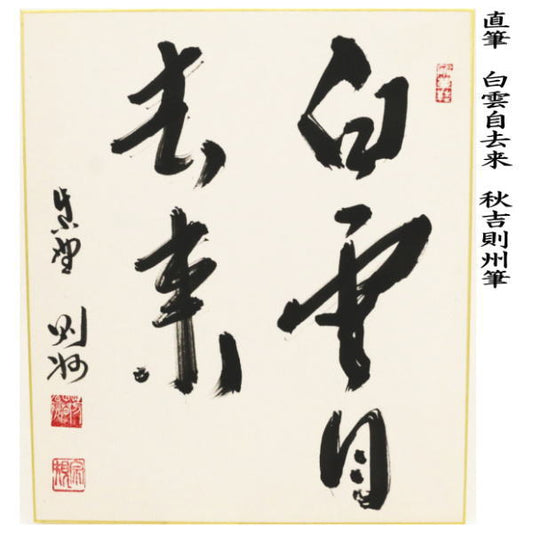 直筆　白雲自去来　秋吉則州筆
白雲自
去来
則州